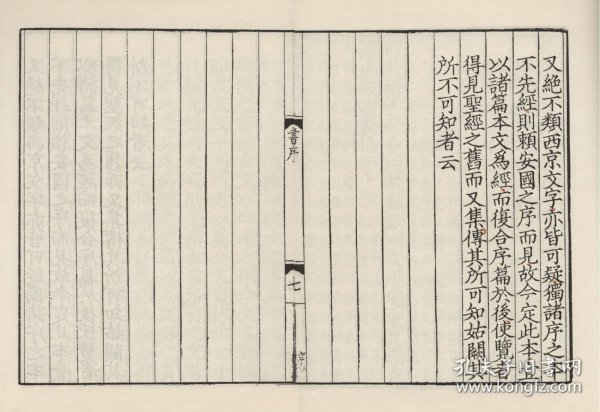 又絶不類西京文字亦皆可疑獨諸序之本
不先經則賴安國之序而見故今定此本壹
以諸篇本文爲經而復合序篇於後使覽者
得見聖經之舊而又集傳其所可知姑闕其
所不可知者云
書序
七
孔夫子旧书网
www.kongfz.com